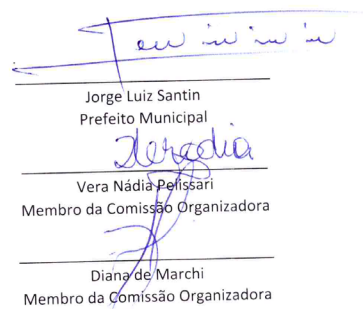 Jorge Luiz Santin
Prefeito Municipal
Vera Nádia Pelissari
Membro da Comissão Organizadora
Diana de Marchi
Membro da Comissão Organizadora